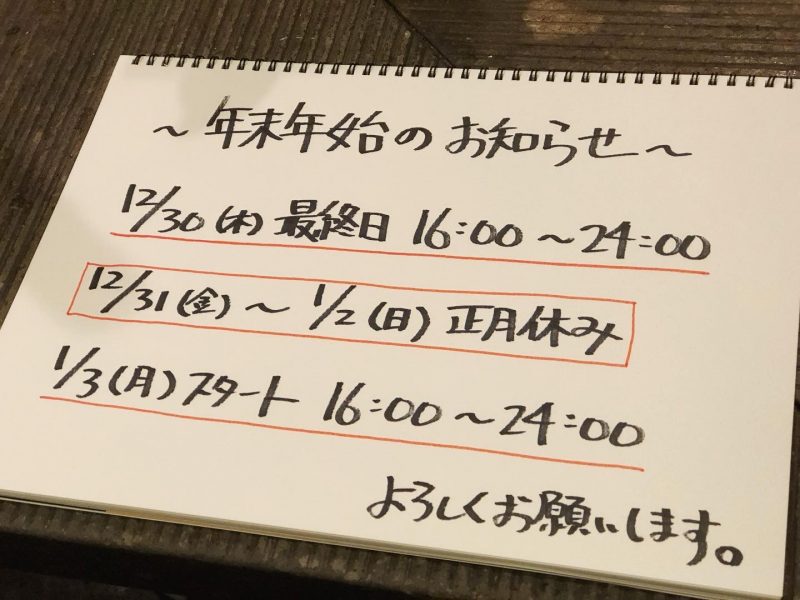 ～年末年始のお知らせ～
12/30(木)最終日 16:00～24:00
12/31(金)～1/2(日)正月休み
1/3(月)スタート 16:00～24:00
よろしくお願いします。